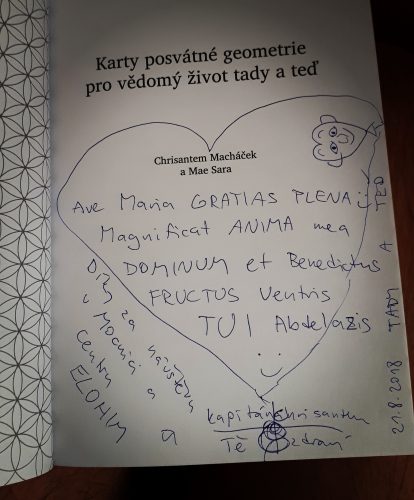 Karty posvátné geometrie
pro vědomý život tady a teď
Chrisantem Macháček
a Mae Sara
Ave Maria GRATIAS PLENA
Magnificat ANIMA mea
DOMINUM et Benedictus
FRUCTUS Ventris
TUI Abdelazis
Díky za návštěvu
v
Centru a
ELOHIM a
kapitán Chrisantem
Tě zdraví
21.8.2018 TADY A TEĎ